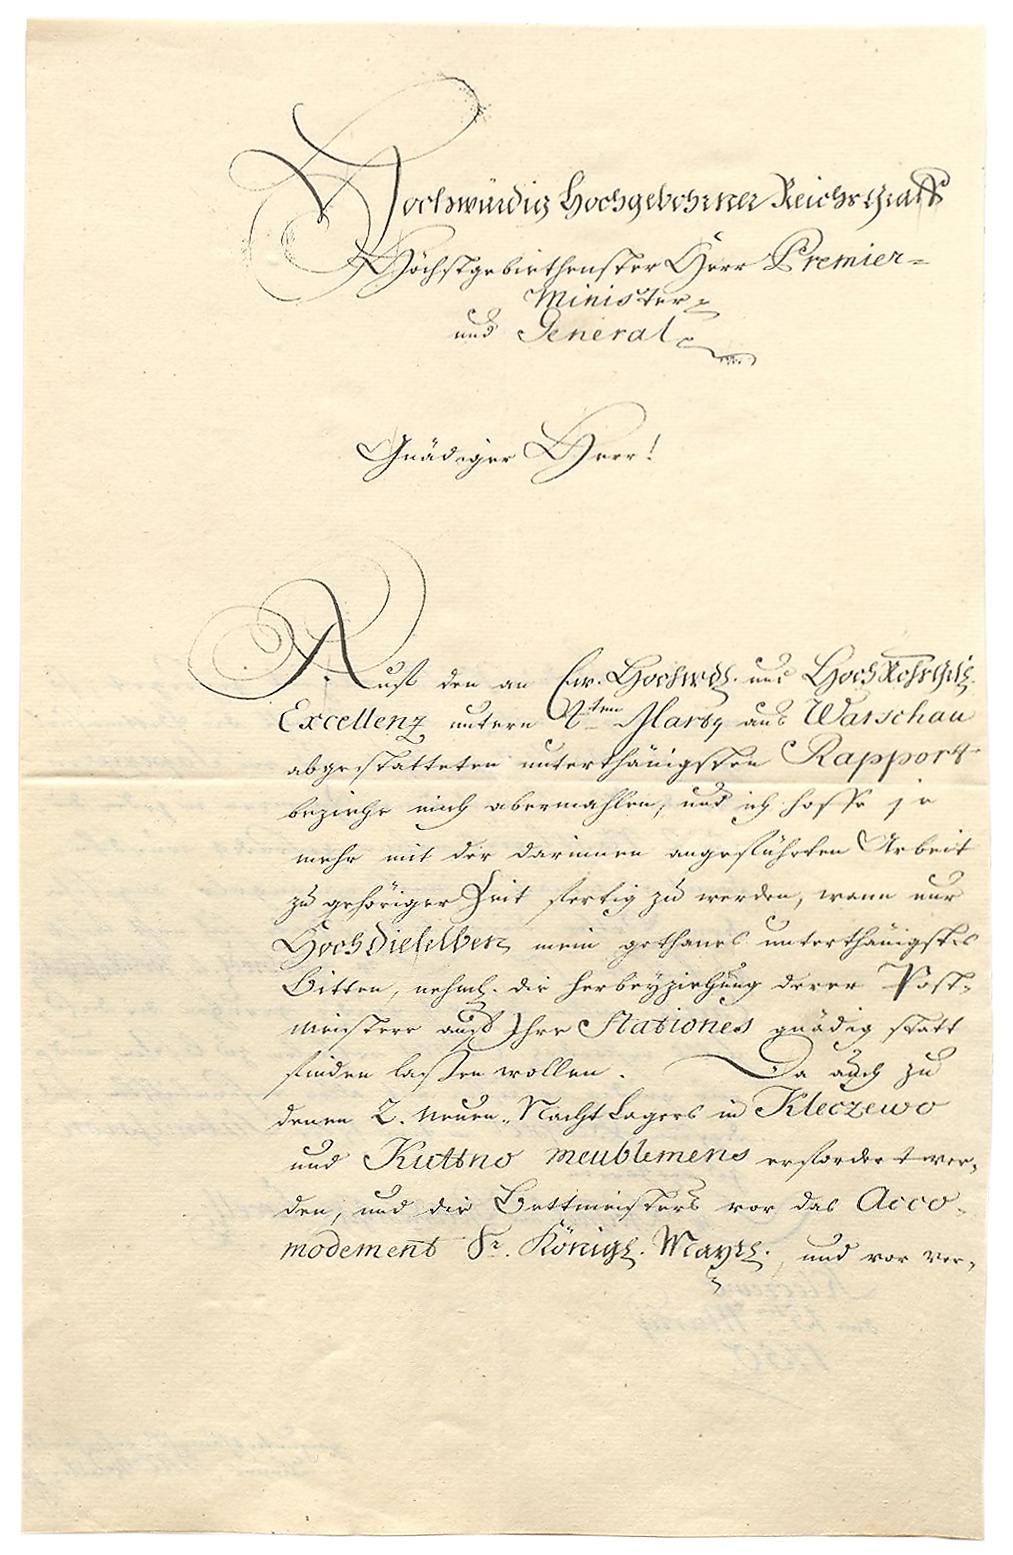 Hochwürdig Hochgebohrner Reichs Graff
Höchstgebiethenster Herr Premier-
Minister
und General.
Gnädiger Herr!
Auf den an Ew. Hochwdl. und Hoch
Excellenz unterm 8ten Marty aus Warschau
abgestatteten unterthänigsten Rapport
beziehe mich abermahlen, und ich hoffe je
mehr mit der darinnen angeführten Arbeit
zu gehöriger Zeit fertig zu werden, wann nur
Hochdieselben mein gethanes unterthänigstes
Bitten, nehml. die herbeyziehung derer Post-
meistere auf Ihre Stationes gnädig statt
finden laßen wollen. Da auch zu
denen 2. neuen Nacht Lagers in Kleczewo
und Kuttno meublemens erfordert wer-
den, und die Bettmeisters vor das Acco-
modement Sr. Königl. Maytl. und vor ver-